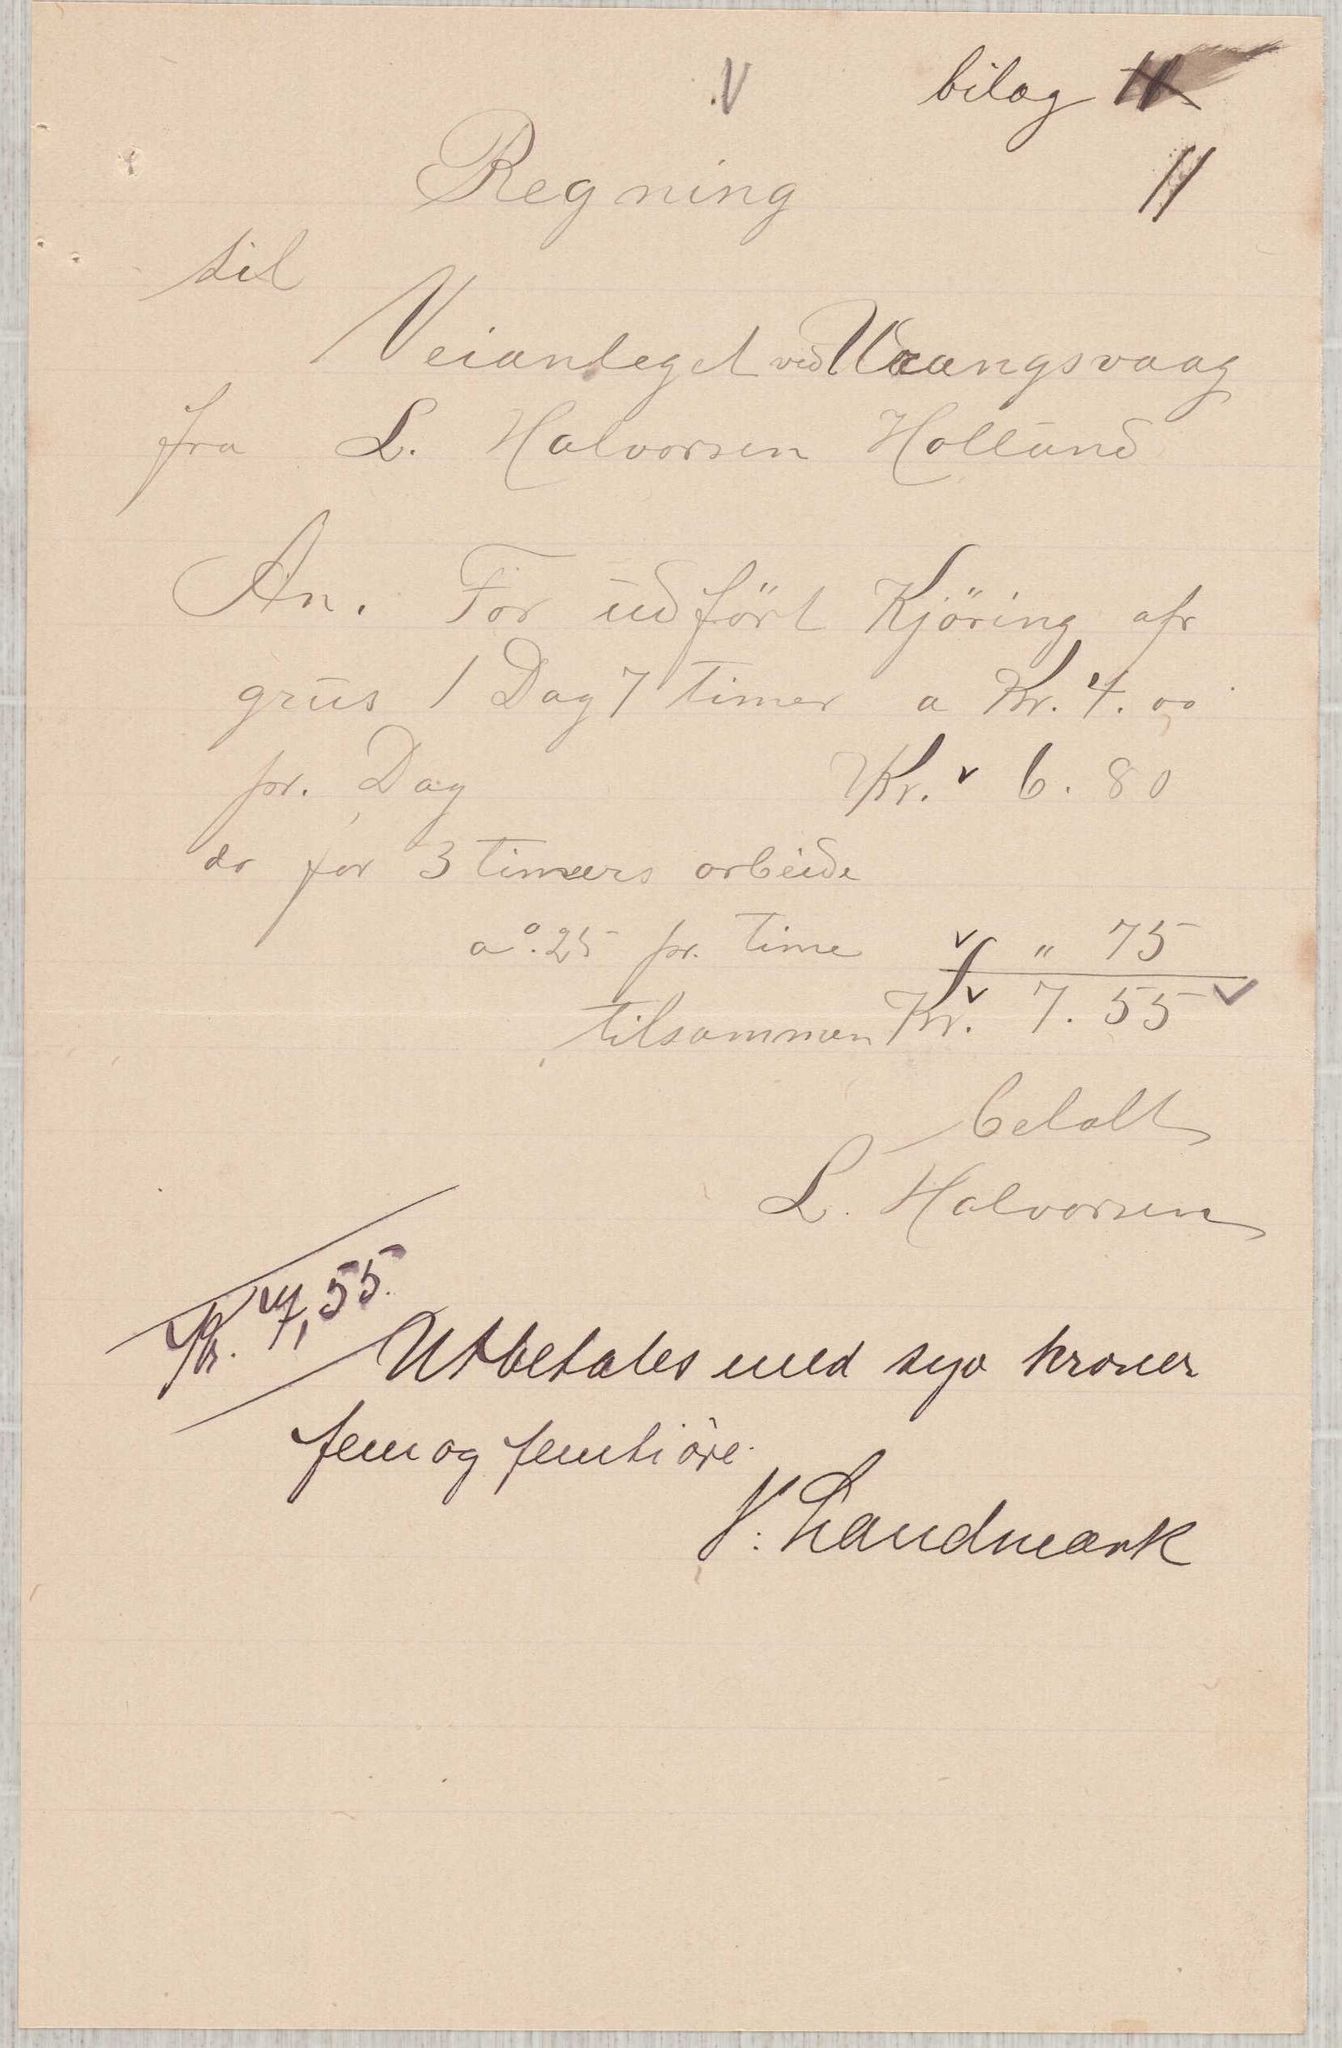 bilag
11
Regning
til
Veianleget ved Vrangsvaag
fra L. Halvorsen Hollund
An. For udfört Kjöring afr
grus 1 Dag 7 timer a Kr. 4. 00
pr. Dag Kr. 6. 80
do for 3 timers arbeide
a o. 25 pr. time " 75
tilsammen Kr. 7. 55
betalt
L. Halvorsen
Kr. 7,55.
Utbetales med syv kroner
fem og femti öre.
N. Landmark